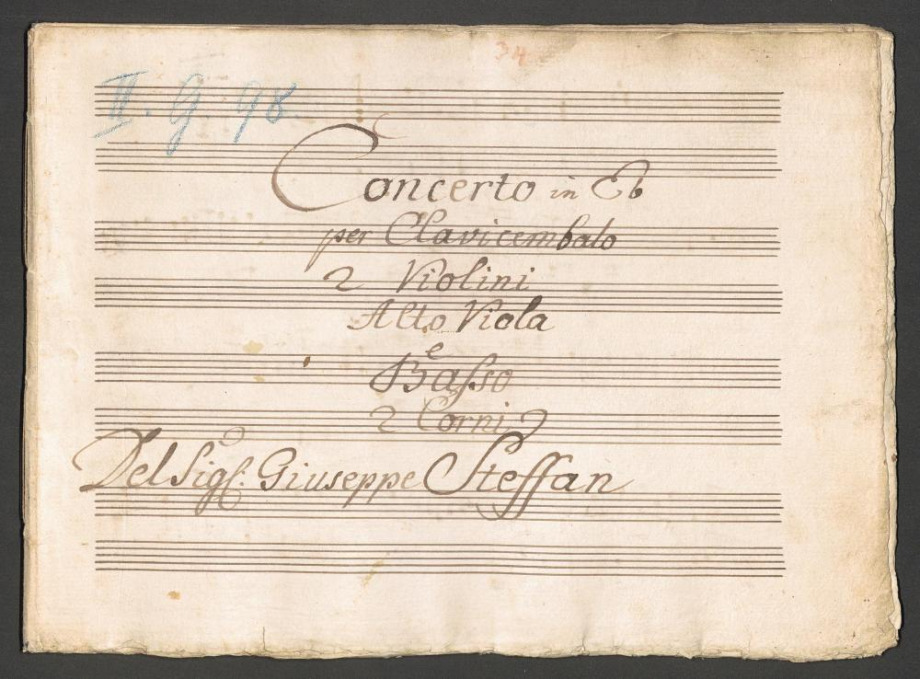 34
II. G. 98
Concerto in Eb
per Clavicembalo
2 Violini
Alto Viola
e
Baſso
2 Corni
Del Sigʳ: Giuseppe Steffan